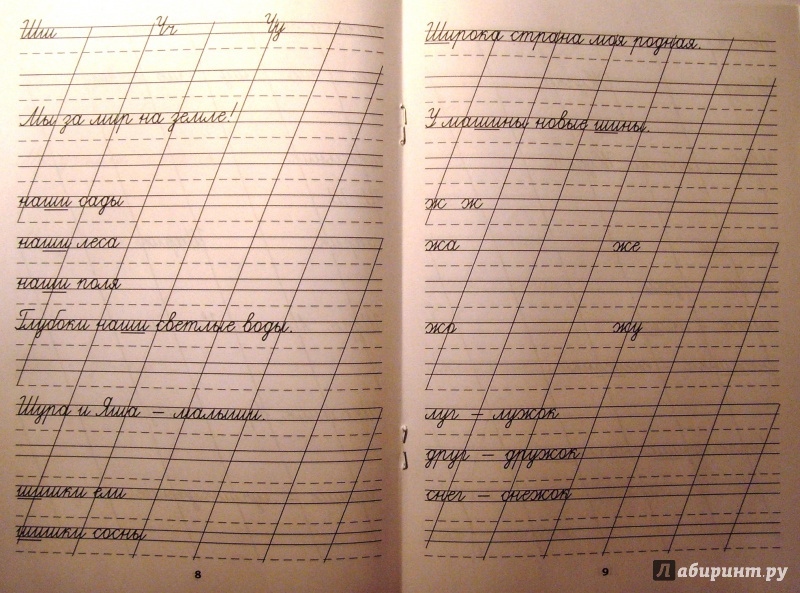 Шш Чч Уу
Мы за мир на земле!
наши сады
наши леса
наши поля
Глубоки наши светлые воды.
Шура и Яша – малыши.
шишки ели
шишки сосны
8
Широка страна моя родная.
У машины новые шины.
ж ж
жа же
жо жу
луг – лужок
друг – дружок
снег – снежок
9
Лабиринт.ру